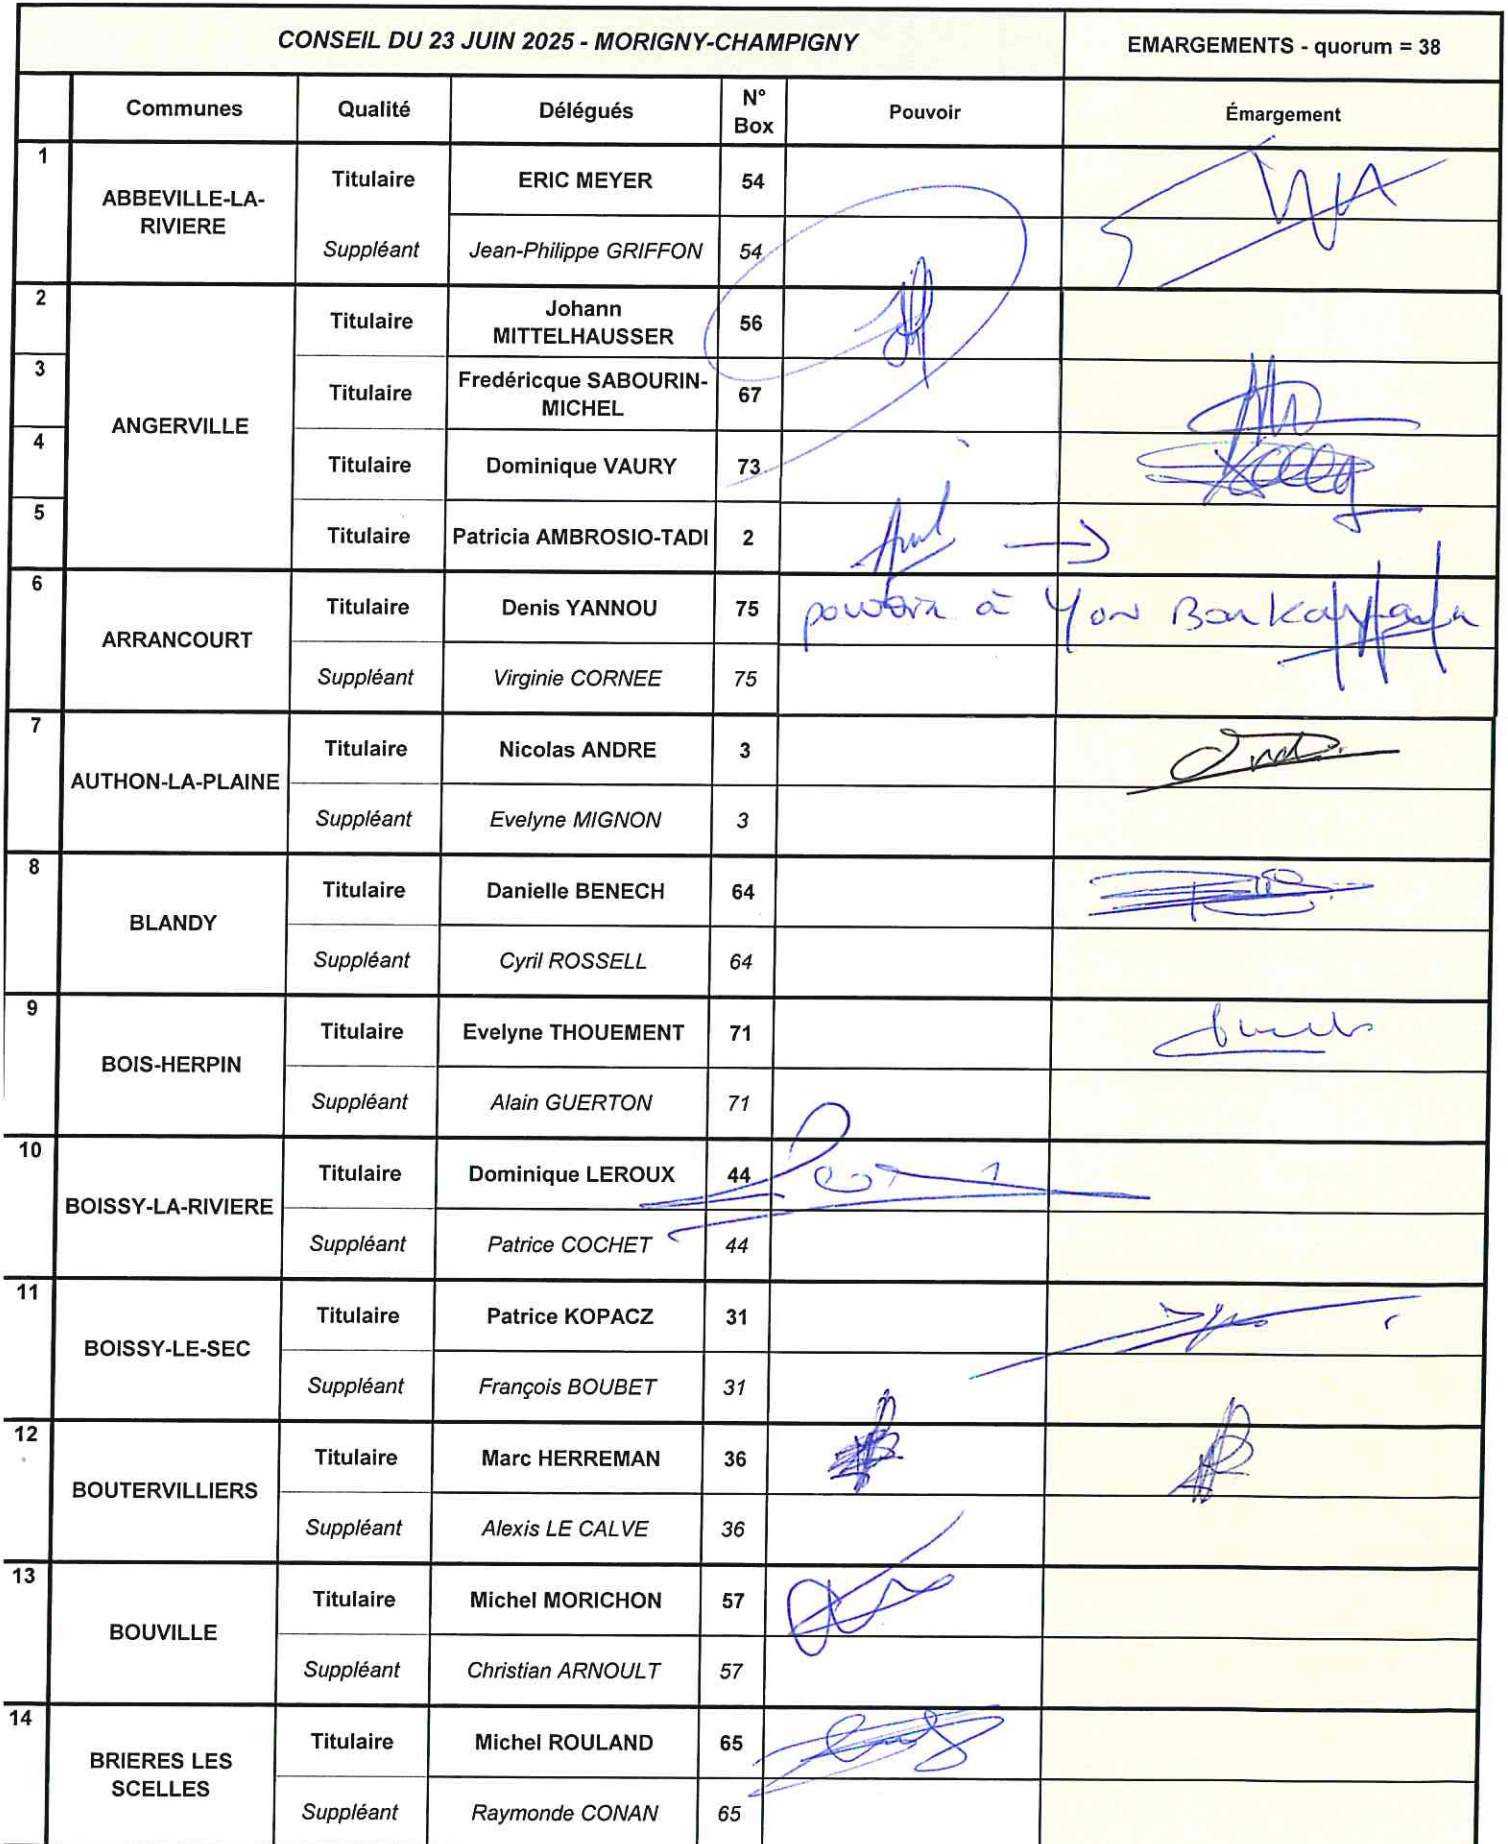 CONSEIL DU 23 JUIN 2025 - MORIGNY-CHAMPIGNY EMARGEMENTS - quorum = 38
Communes Qualité Délégués N° Box Pouvoir Émargement
1 ABBEVILLE-LA-RIVIERE Titulaire ERIC MEYER 54
Suppléant Jean-Philippe GRIFFON 54
2 ANGERVILLE Titulaire Johann MITTELHAUSSER 56
3 Titulaire Fredéricque SABOURIN-MICHEL 67
4 Titulaire Dominique VAURY 73
5 Titulaire Patricia AMBROSIO-TADI 2
6 ARRANCOURT Titulaire Denis YANNOU 75 pouvoir à Yon
Suppléant Virginie CORNEE 75
7 AUTHON-LA-PLAINE Titulaire Nicolas ANDRE 3
Suppléant Evelyne MIGNON 3
8 BLANDY Titulaire Danielle BENECH 64
Suppléant Cyril ROSSELL 64
9 BOIS-HERPIN Titulaire Evelyne THOUEMENT 71
Suppléant Alain GUERTON 71
10 BOISSY-LA-RIVIERE Titulaire Dominique LEROUX 44
Suppléant Patrice COCHET 44
11 BOISSY-LE-SEC Titulaire Patrice KOPACZ 31
Suppléant François BOUBET 31
12 BOUTERVILLIERS Titulaire Marc HERREMAN 36
Suppléant Alexis LE CALVE 36
13 BOUVILLE Titulaire Michel MORICHON 57
Suppléant Christian ARNOULT 57
14 BRIERES LES SCELLES Titulaire Michel ROULAND 65
Suppléant Raymonde CONAN 65